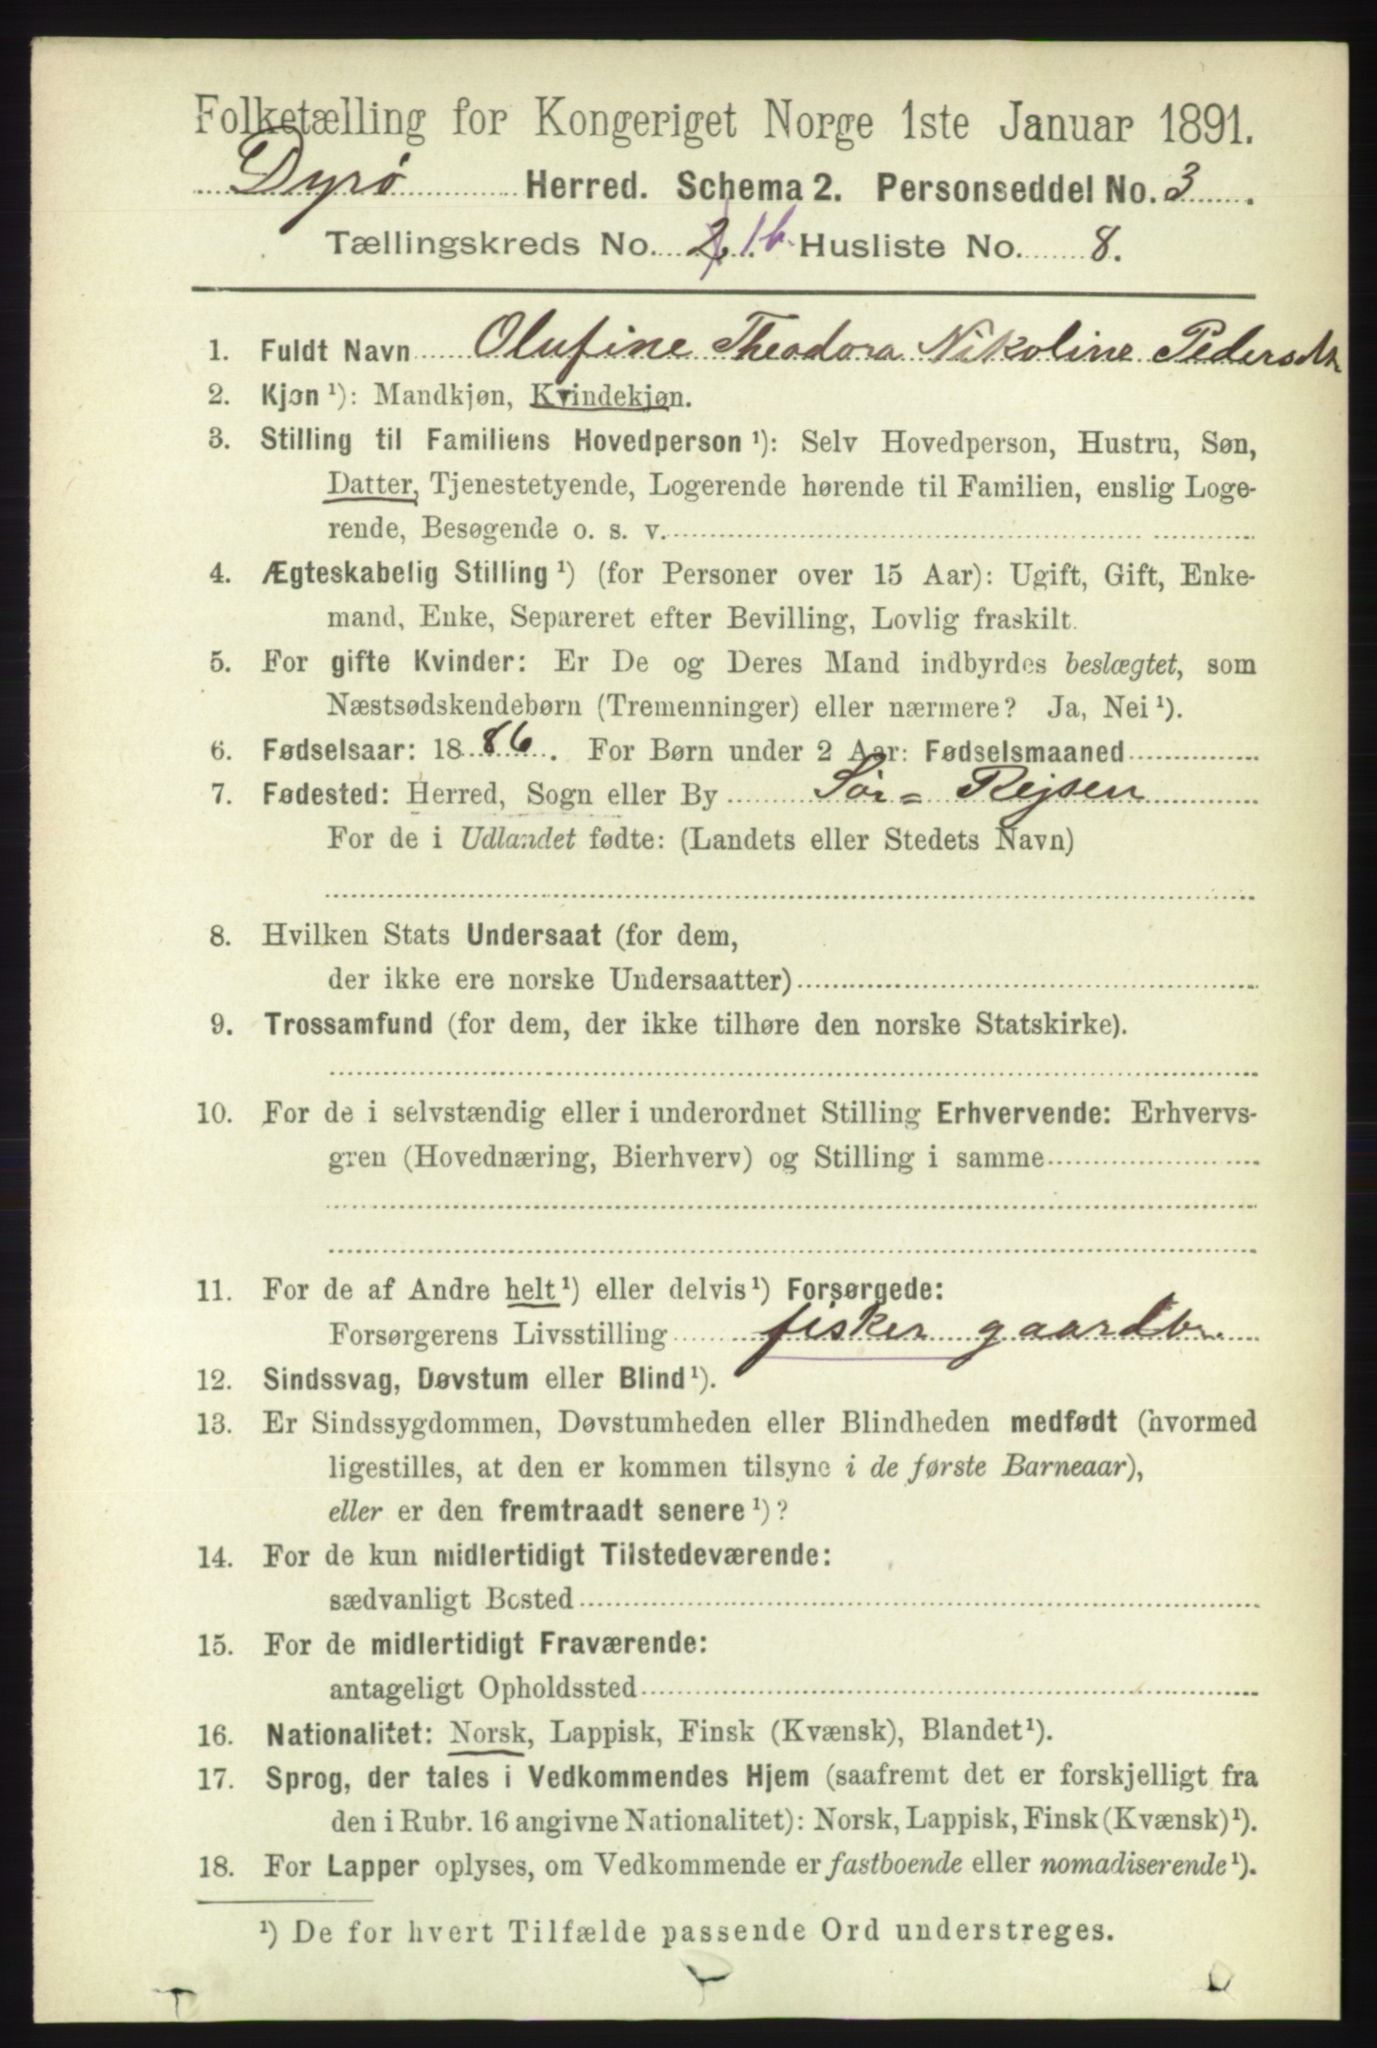 Folketælling for Kongeriget Norge 1ste Januar 1891.
Dyrø Herred. Schema 2. Personseddel No. 3.
Tællingskreds No. 2. 1b. Husliste No. 8.
1. Fuldt Navn Olufine Theodora Nikoline Pedersdtr
2. Kjøn ¹): Mandkjøn, Kvindekjøn.
3. Stilling til Familiens Hovedperson ¹): Selv Hovedperson, Hustru, Søn,
Datter, Tjenestetyende, Logerende hørende til Familien, enslig Loge-
rende, Besøgende o. s. v.
4. Ægteskabelig Stilling ¹) (for Personer over 15 Aar): Ugift, Gift, Enke-
mand, Enke, Separeret efter Bevilling, Lovlig fraskilt.
5. For gifte Kvinder: Er De og Deres Mand indbyrdes beslægtet, som
Næstsødskendebørn (Tremenninger) eller nærmere? Ja, Nei ¹).
6. Fødselsaar: 1886. For Børn under 2 Aar: Fødselsmaaned
7. Fødested: Herred, Sogn eller By Sør=Rejsen
For de i Udlandet fødte: (Landets eller Stedets Navn)
8. Hvilken Stats Undersaat (for dem,
der ikke ere norske Undersaatter)
9. Trossamfund (for dem, der ikke tilhøre den norske Statskirke).
10. For de i selvstændig eller i underordnet Stilling Erhvervende: Erhvervs-
gren (Hovednæring, Bierhverv) og Stilling i samme
11. For de af Andre helt ¹) eller delvis ¹) Forsørgede:
Forsørgerens Livsstilling fisker gaardbr.
12. Sindssvag, Døvstum eller Blind ¹).
13. Er Sindssygdommen, Døvstumheden eller Blindheden medfødt (hvormed
ligestilles, at den er kommen tilsyne i de første Barneaar),
eller er den fremtraadt senere ¹)?
14. For de kun midlertidigt Tilstedeværende:
sædvanligt Bosted
15. For de midlertidigt Fraværende:
antageligt Opholdssted
16. Nationalitet: Norsk, Lappisk, Finsk (Kvænsk), Blandet ¹).
17. Sprog, der tales i Vedkommendes Hjem (saafremt det er forskjelligt fra
den i Rubr. 16 angivne Nationalitet): Norsk, Lappisk, Finsk (Kvænsk) ¹).
18. For Lapper oplyses, om Vedkommende er fastboende eller nomadiserende ¹).
¹) De for hvert Tilfælde passende Ord understreges.